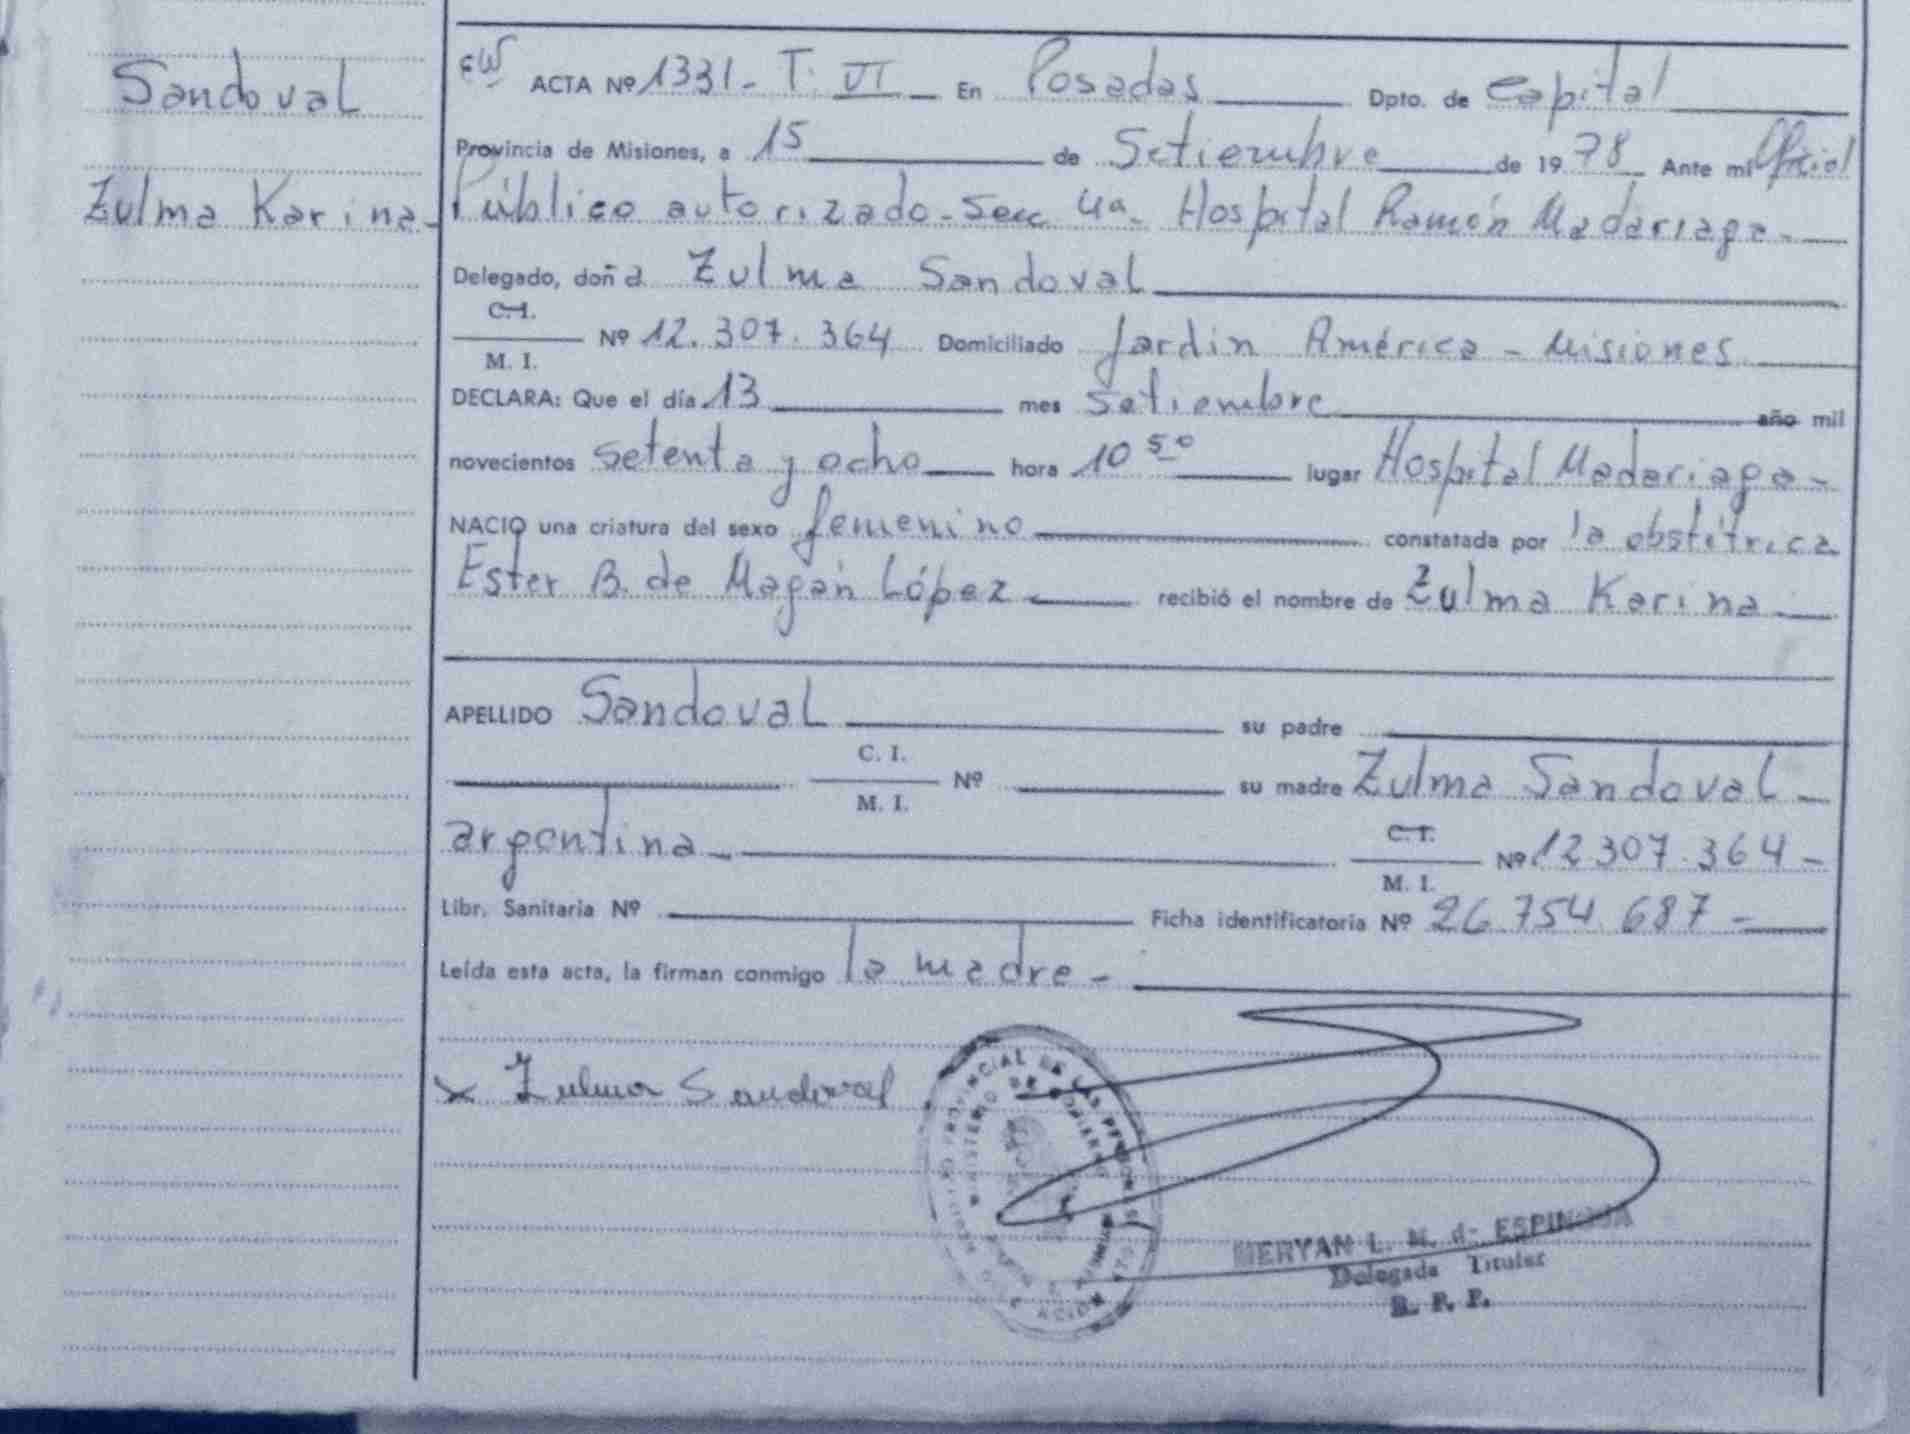 Sandoval
Zulma Karina-
ACTA Nº 1331- T. VI - En Posadas Dpto. de Capital
Provincia de Misiones, a 15 de Setiembre de 1978 Ante mi Oficial
Público autorizado - Secc 4ª - Hospital Ramón Madariaga -
Delegado, doña Zulma Sandoval
C. I.
M. I. Nº 12.307.364 Domiciliado Jardin América - Misiones
DECLARA: Que el día 13 mes Setiembre año mil
novecientos setenta y ocho hora 10 50 lugar Hospital Madariaga -
NACIO una criatura del sexo femenino constatada por la obstétrica
Ester B. de Magán López - recibió el nombre de Zulma Karina
APELLIDO Sandoval su padre
C. I.
M. I. Nº su madre Zulma Sandoval -
argentina - C. I.
M. I. Nº 12307.364 -
Libr. Sanitaria Nº Ficha identificatoria Nº 26.754.687 -
Leída esta acta, la firman conmigo la madre -
x Zulma Sandoval
MERYAN L. M. de ESPINDOLA
Delegada Titular
R. P. P.